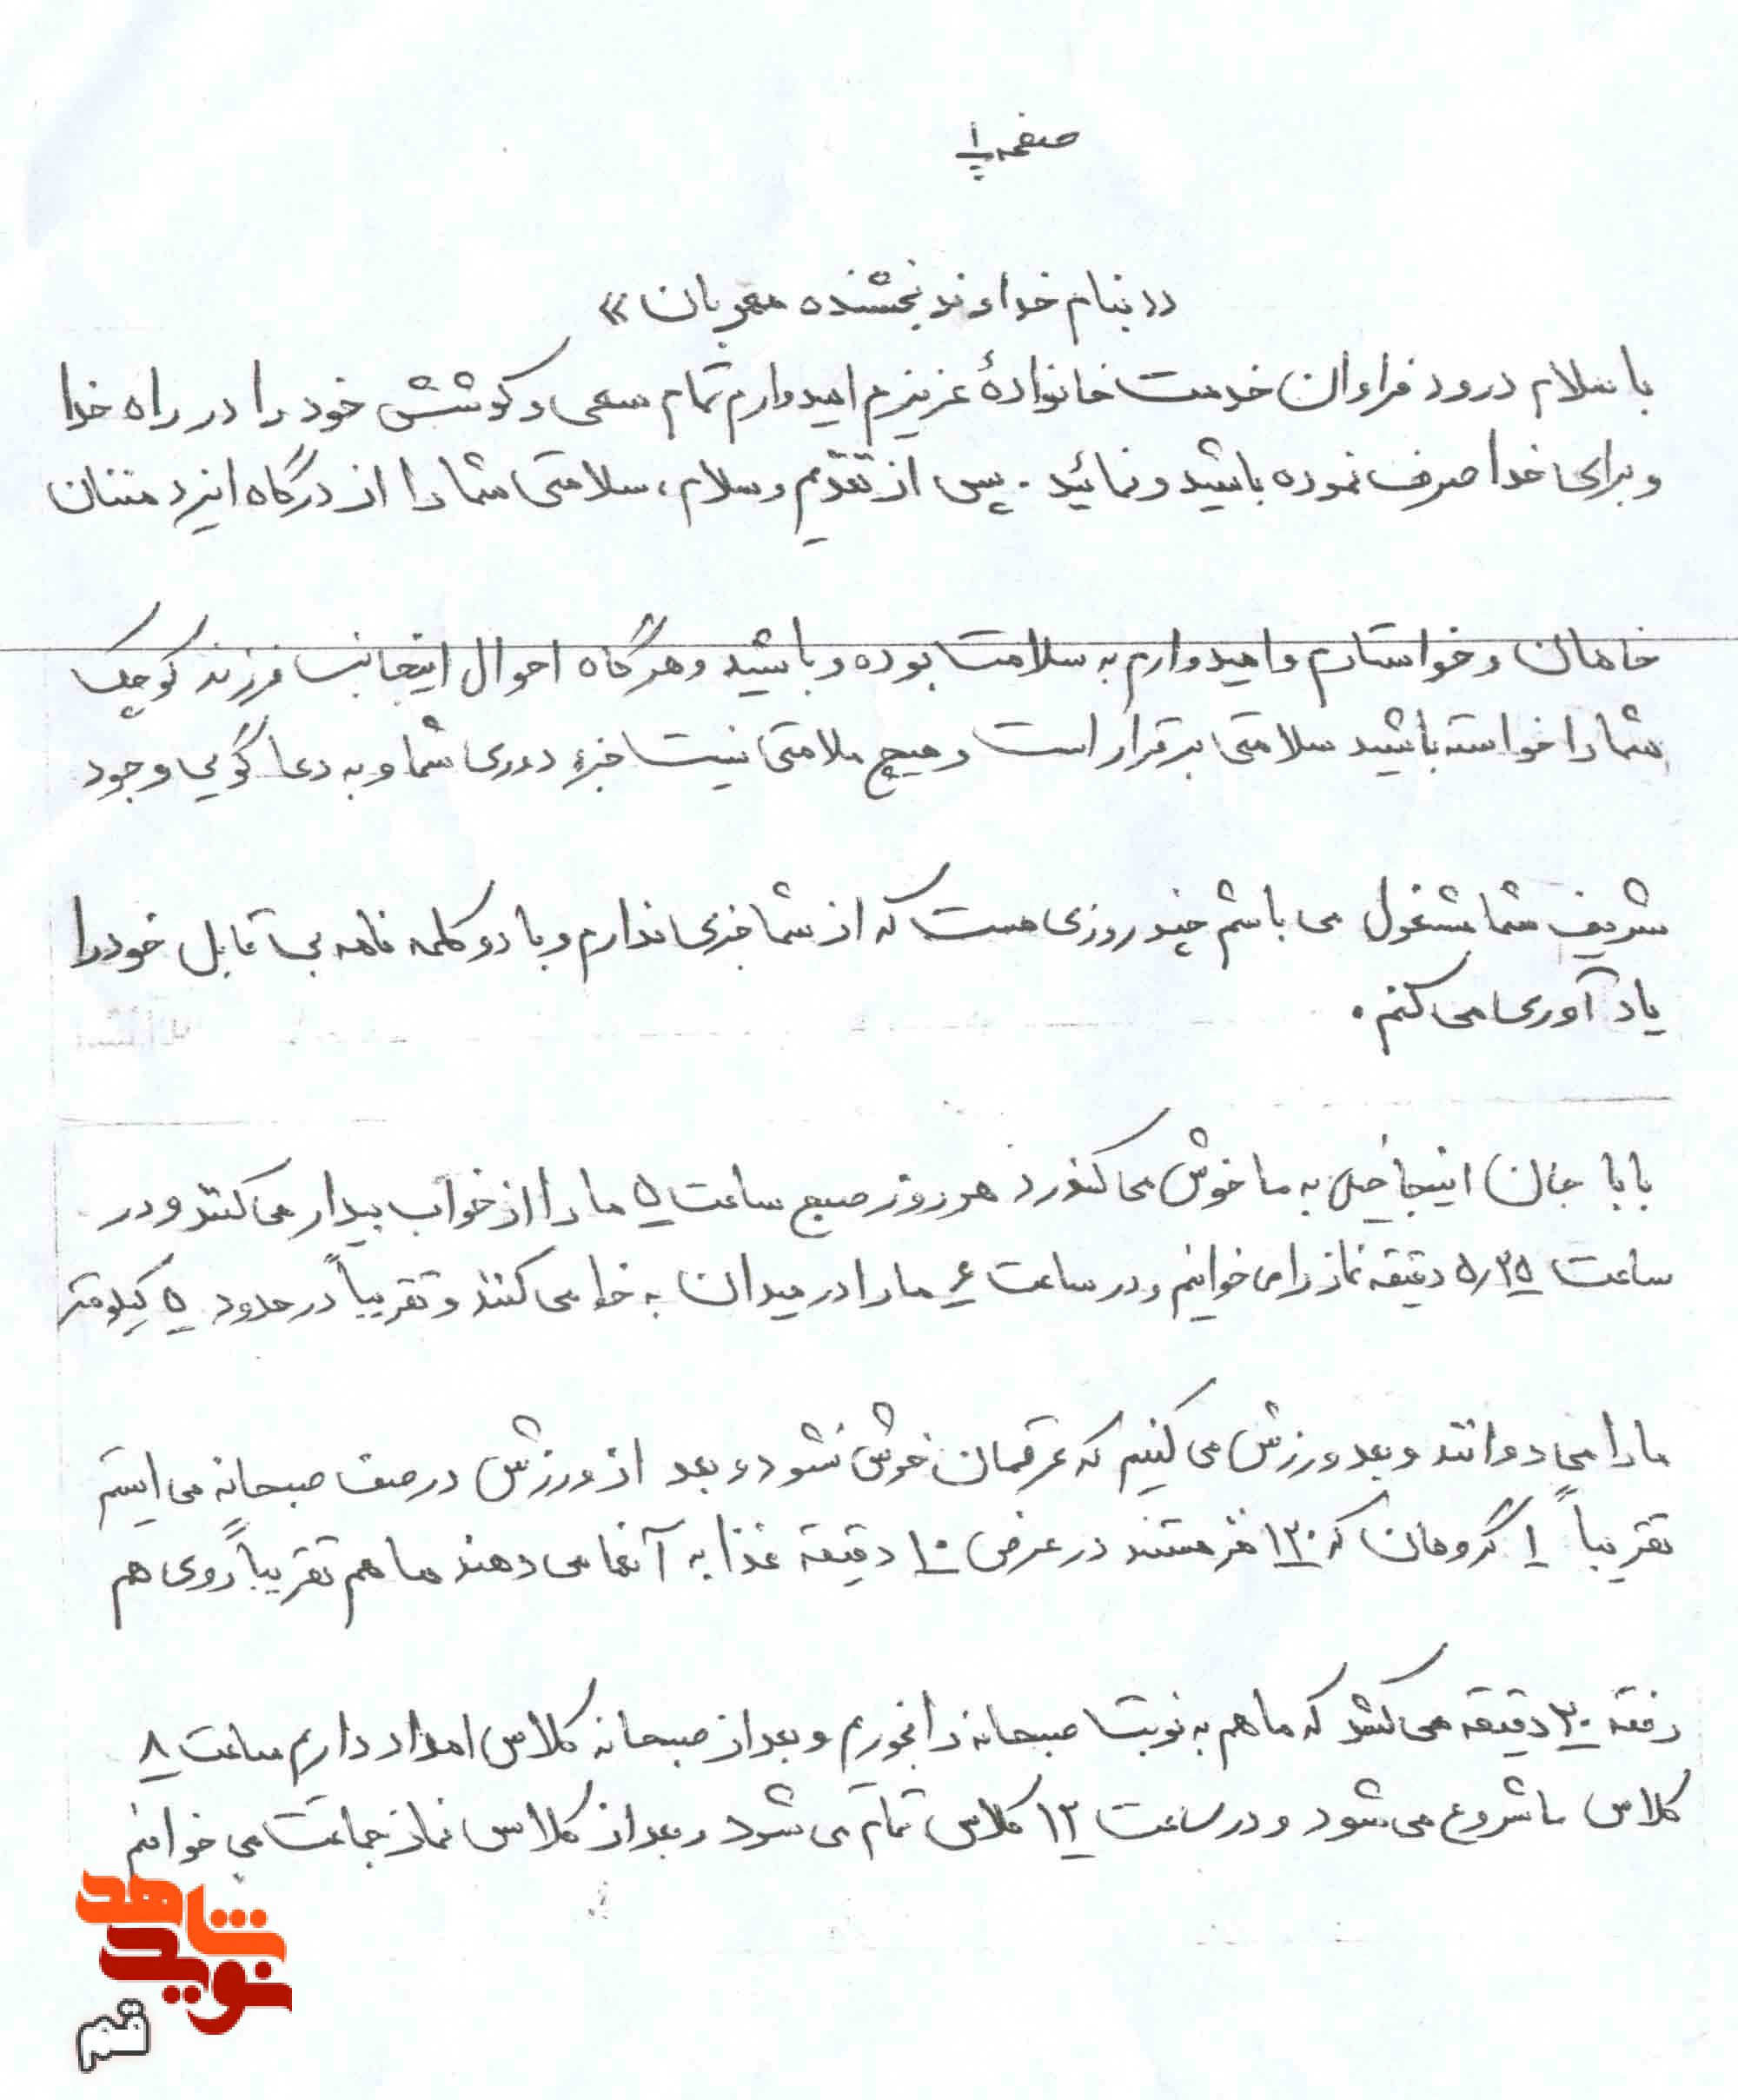 صفحه ۱
«بنام خداوند بخشنده مهربان»
با سلام درود فراوان خدمت خانوادهٔ عزیزم امیدوارم تمام سعی و کوشش خود را در راه خدا
و برای خدا صرف نموده باشید و نمائید. پس از تقدیم و سلام، سلامتی شما را از درگاه ایزد منان
خاهان و خواستارم و امیدوارم به سلامت بوده و باشید و هرگاه احوال اینجانب فرزند کوچک
شما را خواسته باشید سلامتی برقرار است و هیچ ملامتی نیست جزء دوری شما و به دعا گویی وجود
شریف شما مشغول می باشم چند روزی هست که از شما خبری ندارم و با دو کلمه نامه بی قابل خود را
یاد آوری می کنم.
بابا جان اینجا خیلی به ما خوش می گذرد هر روز صبح ساعت ۵ ما را از خواب بیدار می کنند و در
ساعت ۵/۲۵ دقیقه نماز را می خوانیم و در ساعت ۶ ما را در میدان به خط می کنند و تقریباً در حدود ۵ کیلومتر
ما را می دوانند و بعد ورزش می کنیم که عرقمان خوش شود و بعد از ورزش در صف صبحانه می ایستم
تقریباً ۱ گروهان که ۱۳۰ نفر هستند در عرض ۱۰ دقیقه غذا به آنها می دهند ما هم تقریباً روی هم
رفته ۳۰ دقیقه می کشد که ما هم به نوبت صبحانه را بخوریم و بعد از صبحانه کلاس امداد داریم ساعت ۸
کلاس ما شروع می شود و در ساعت ۱۲ کلاس تمام می شود و بعد از کلاس نماز جماعت می خوانیم
شاهد
نوید
قم